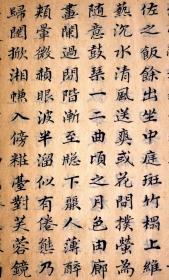 佐之飯餘出坐中庭斑竹榻上維
藝沉水清風送爽或花間撲螢為
隨意鼓琹一二曲頃之月色由廊
畫闌過閒階漸至膝下藥人薄醉
頰暈微赪眼波半溜似有倦態乃
歸閨掀湘㡘入傍糚臺對芙蓉鏡